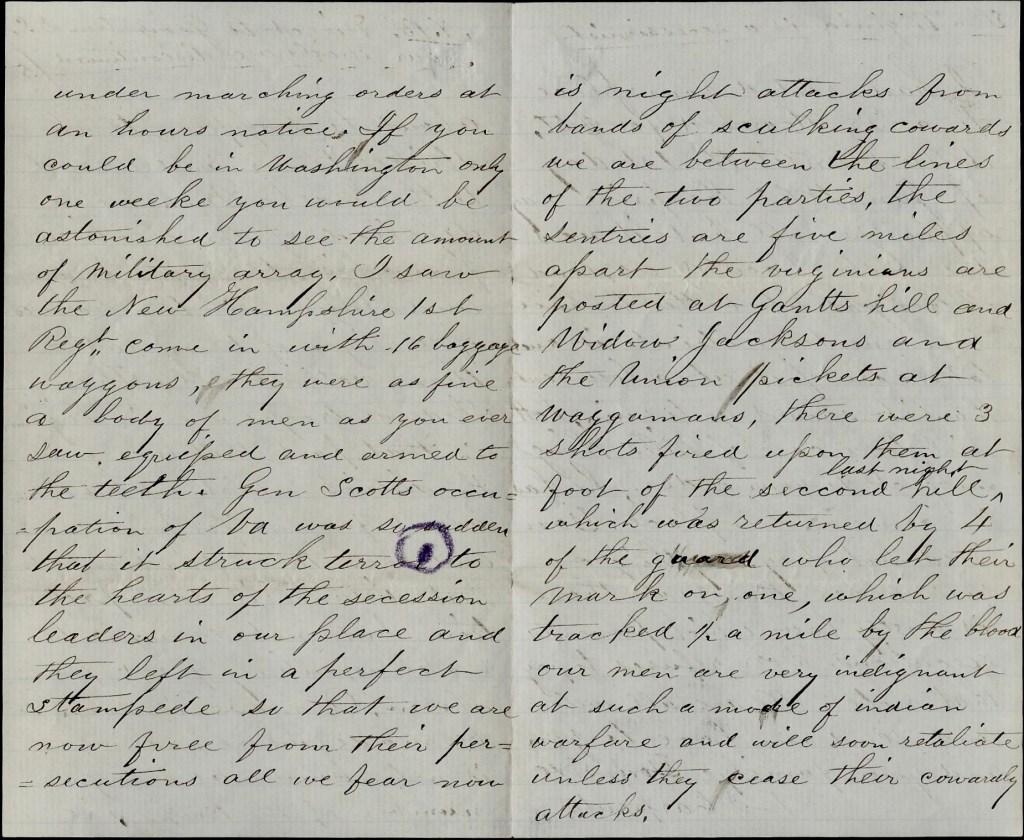 under marching orders at
an hours notice. If you
could be in Washington only
one weeke you would be
astonished to see the amount
of military array, I saw
the New Hampshire 1st
Regt,, come in with 16 baggage
waggons, they were as fine
a body of men as you ever
saw, equiped and armed to
the teeth. Gen Scotts occu=
=pation of Va was so sudden
that it struck terror to
the hearts of the secession
leaders in our place and
they left in a perfect
stampede so that we are
now free from their per=
=secutions all we fear now
is night attacks from
bands of sculking cowards
we are between the lines
of the two parties, the
sentries are five miles
apart the virginians are
posted at Gantts hill and
Widow Jacksons and
the Union pickets at
Waggamans, there were 3
shots fired upon them at
foot of the second hill ^ last night
which was returned by 4
of the guard who left their
mark on one, which was
tracked 1/2 a mile by the blood
our men are very indignant
at such a mode of indian
warfare and will soon retaliate
unless they cease their cowardly
attacks.